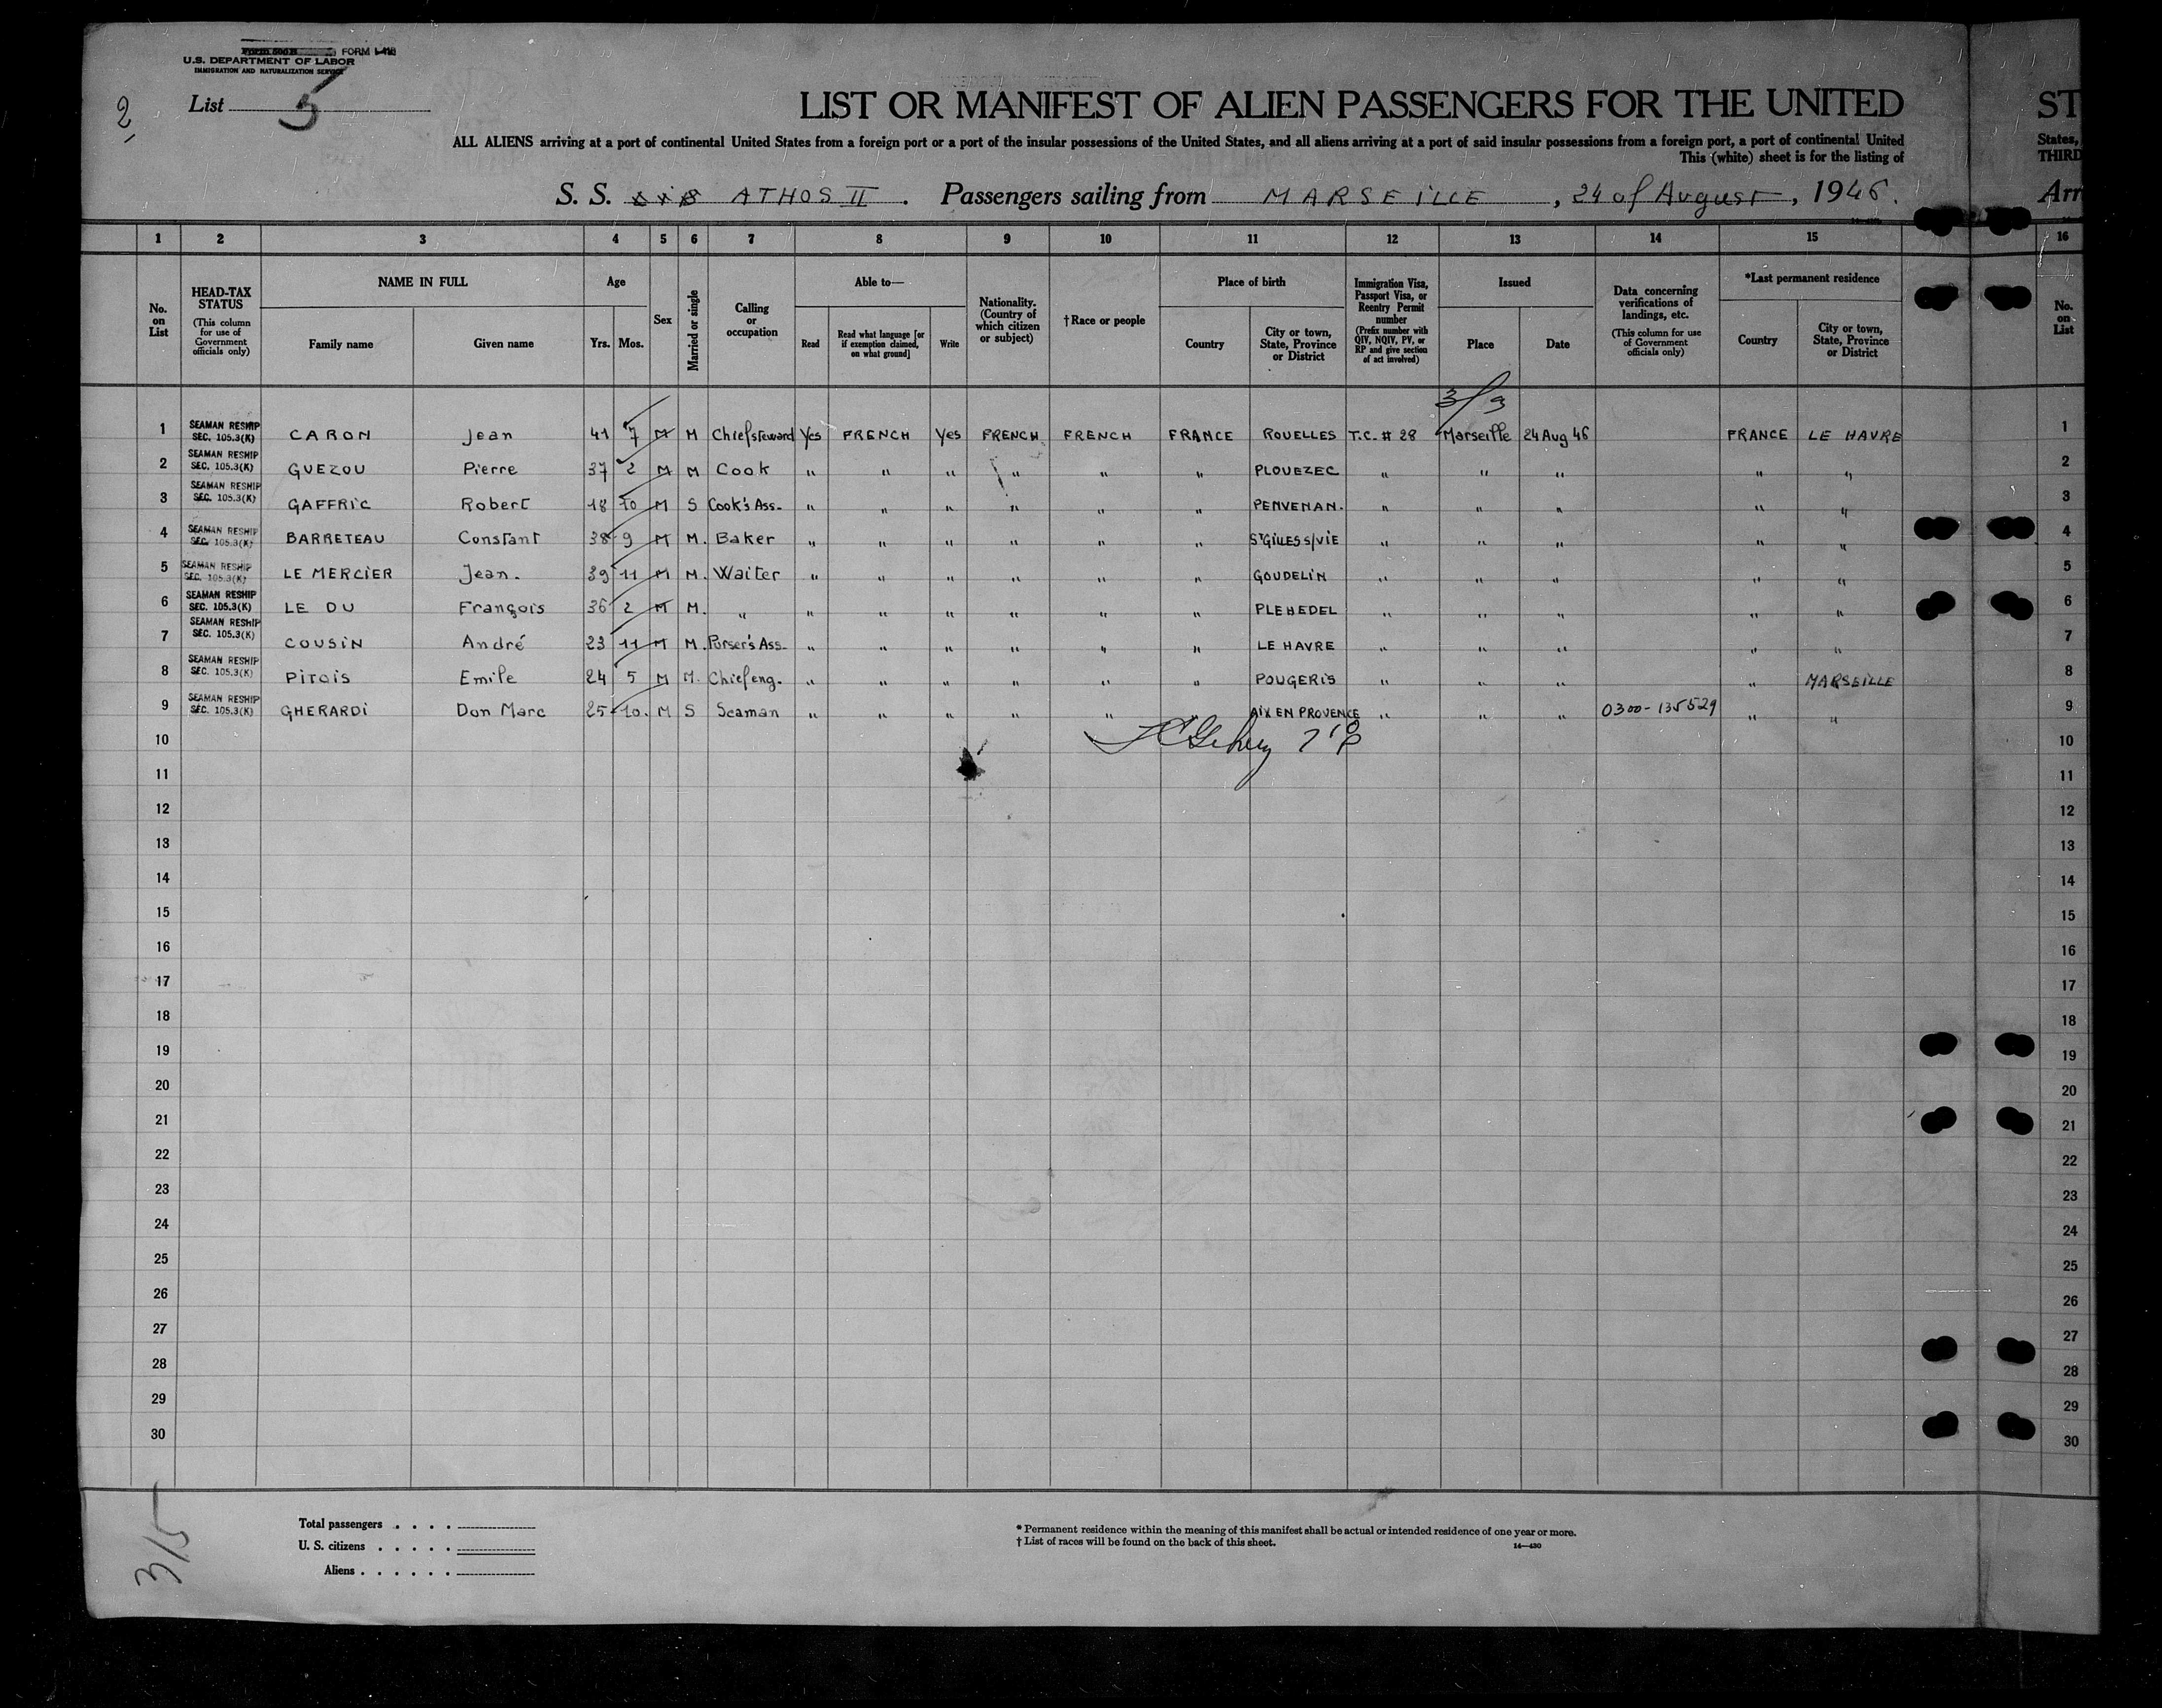 FORM
U.S. DEPARTMENT OF LABOR
IMMIGRATION AND NATURALIZATION SERVICE
2
List 5
LIST OR MANIFEST OF ALIEN PASSENGERS FOR THE UNITED ST
ALL ALIENS arriving at a port of continental United States from a foreign port or a port of the insular possessions of the United States, and all aliens arriving at a port of said insular possessions from a foreign port, a port of continental United States,
This (white) sheet is for the listing of THIRD
S. S. ATHOS II . Passengers sailing from MARSEILLE , 24 of August , 1946. Arr
1 2 3 4 5 6 7 8 9 10 11 12 13 14 15 16
No. on List
HEAD-TAX STATUS (This column for use of Government officials only)
NAME IN FULL
Family name
Given name
Age
Yrs. Mos.
Sex
Married or single
Calling or occupation
Able to—
Read
Read what language [or if exemption claimed, on what ground]
Write
Nationality. (Country of which citizen or subject)
†Race or people
Place of birth
Country
City or town, State, Province or District
Immigration Visa, Passport Visa, or Reentry Permit number (Prefix number with QIV, NQIV, PV, or RP and give section of act involved)
Issued
Place
Date
Data concerning verifications of landings, etc. (This column for use of Government officials only)
*Last permanent residence
Country
City or town, State, Province or District
No. on List
3/9
1 SEAMAN RESHIP SEC. 105.3(K) CARON Jean 41 7 M M Chiefsteward Yes FRENCH Yes FRENCH FRENCH FRANCE ROUELLES T.C. # 28 Marseille 24 Aug 46 FRANCE LE HAVRE 1
2 SEAMAN RESHIP SEC. 105.3(K) GUEZOU Pierre 37 2 M M Cook " " " " " " PLOUEZEC " " " " " 2
3 SEAMAN RESHIP SEC. 105.3(K) GAFFRIC Robert 18 10 M S Cook's Ass. " " " " " " PENVENAN. " " " " " 3
4 SEAMAN RESHIP SEC. 105.3(K) BARRETEAU Constant 38 9 M M. Baker " " " " " " St GILLES S/VIE " " " " " 4
5 SEAMAN RESHIP SEC. 105.3(K) LE MERCIER Jean. 39 11 M M. Waiter " " " " " " GOUDELIN " " " " " 5
6 SEAMAN RESHIP SEC. 105.3(K) LE DU François 36 2 M M. " " " " " " " PLEHEDEL " " " " " 6
7 SEAMAN RESHIP SEC. 105.3(K) COUSIN André 23 11 M M. Purser's Ass. " " " " " " LE HAVRE " " " " " 7
8 SEAMAN RESHIP SEC. 105.3(K) PITOIS Emile 24 5 M M. Chief eng. " " " " " " POUGERIS " " " " MARSEILLE 8
9 SEAMAN RESHIP SEC. 105.3(K) GHERARDI Don Marc 25 10. M S Seaman " " " " " " AIX EN PROVENCE " " " 0300-135529 " " 9
10 10
11 11
12 12
13 13
14 14
15 15
16 16
17 17
18 18
19 19
20 20
21 21
22 22
23 23
24 24
25 25
26 26
27 27
28 28
29 29
30 30
3/5
Total passengers . . . .
U. S. citizens . . . . .
Aliens . . . . . .
* Permanent residence within the meaning of this manifest shall be actual or intended residence of one year or more.
† List of races will be found on the back of this sheet.
14—430